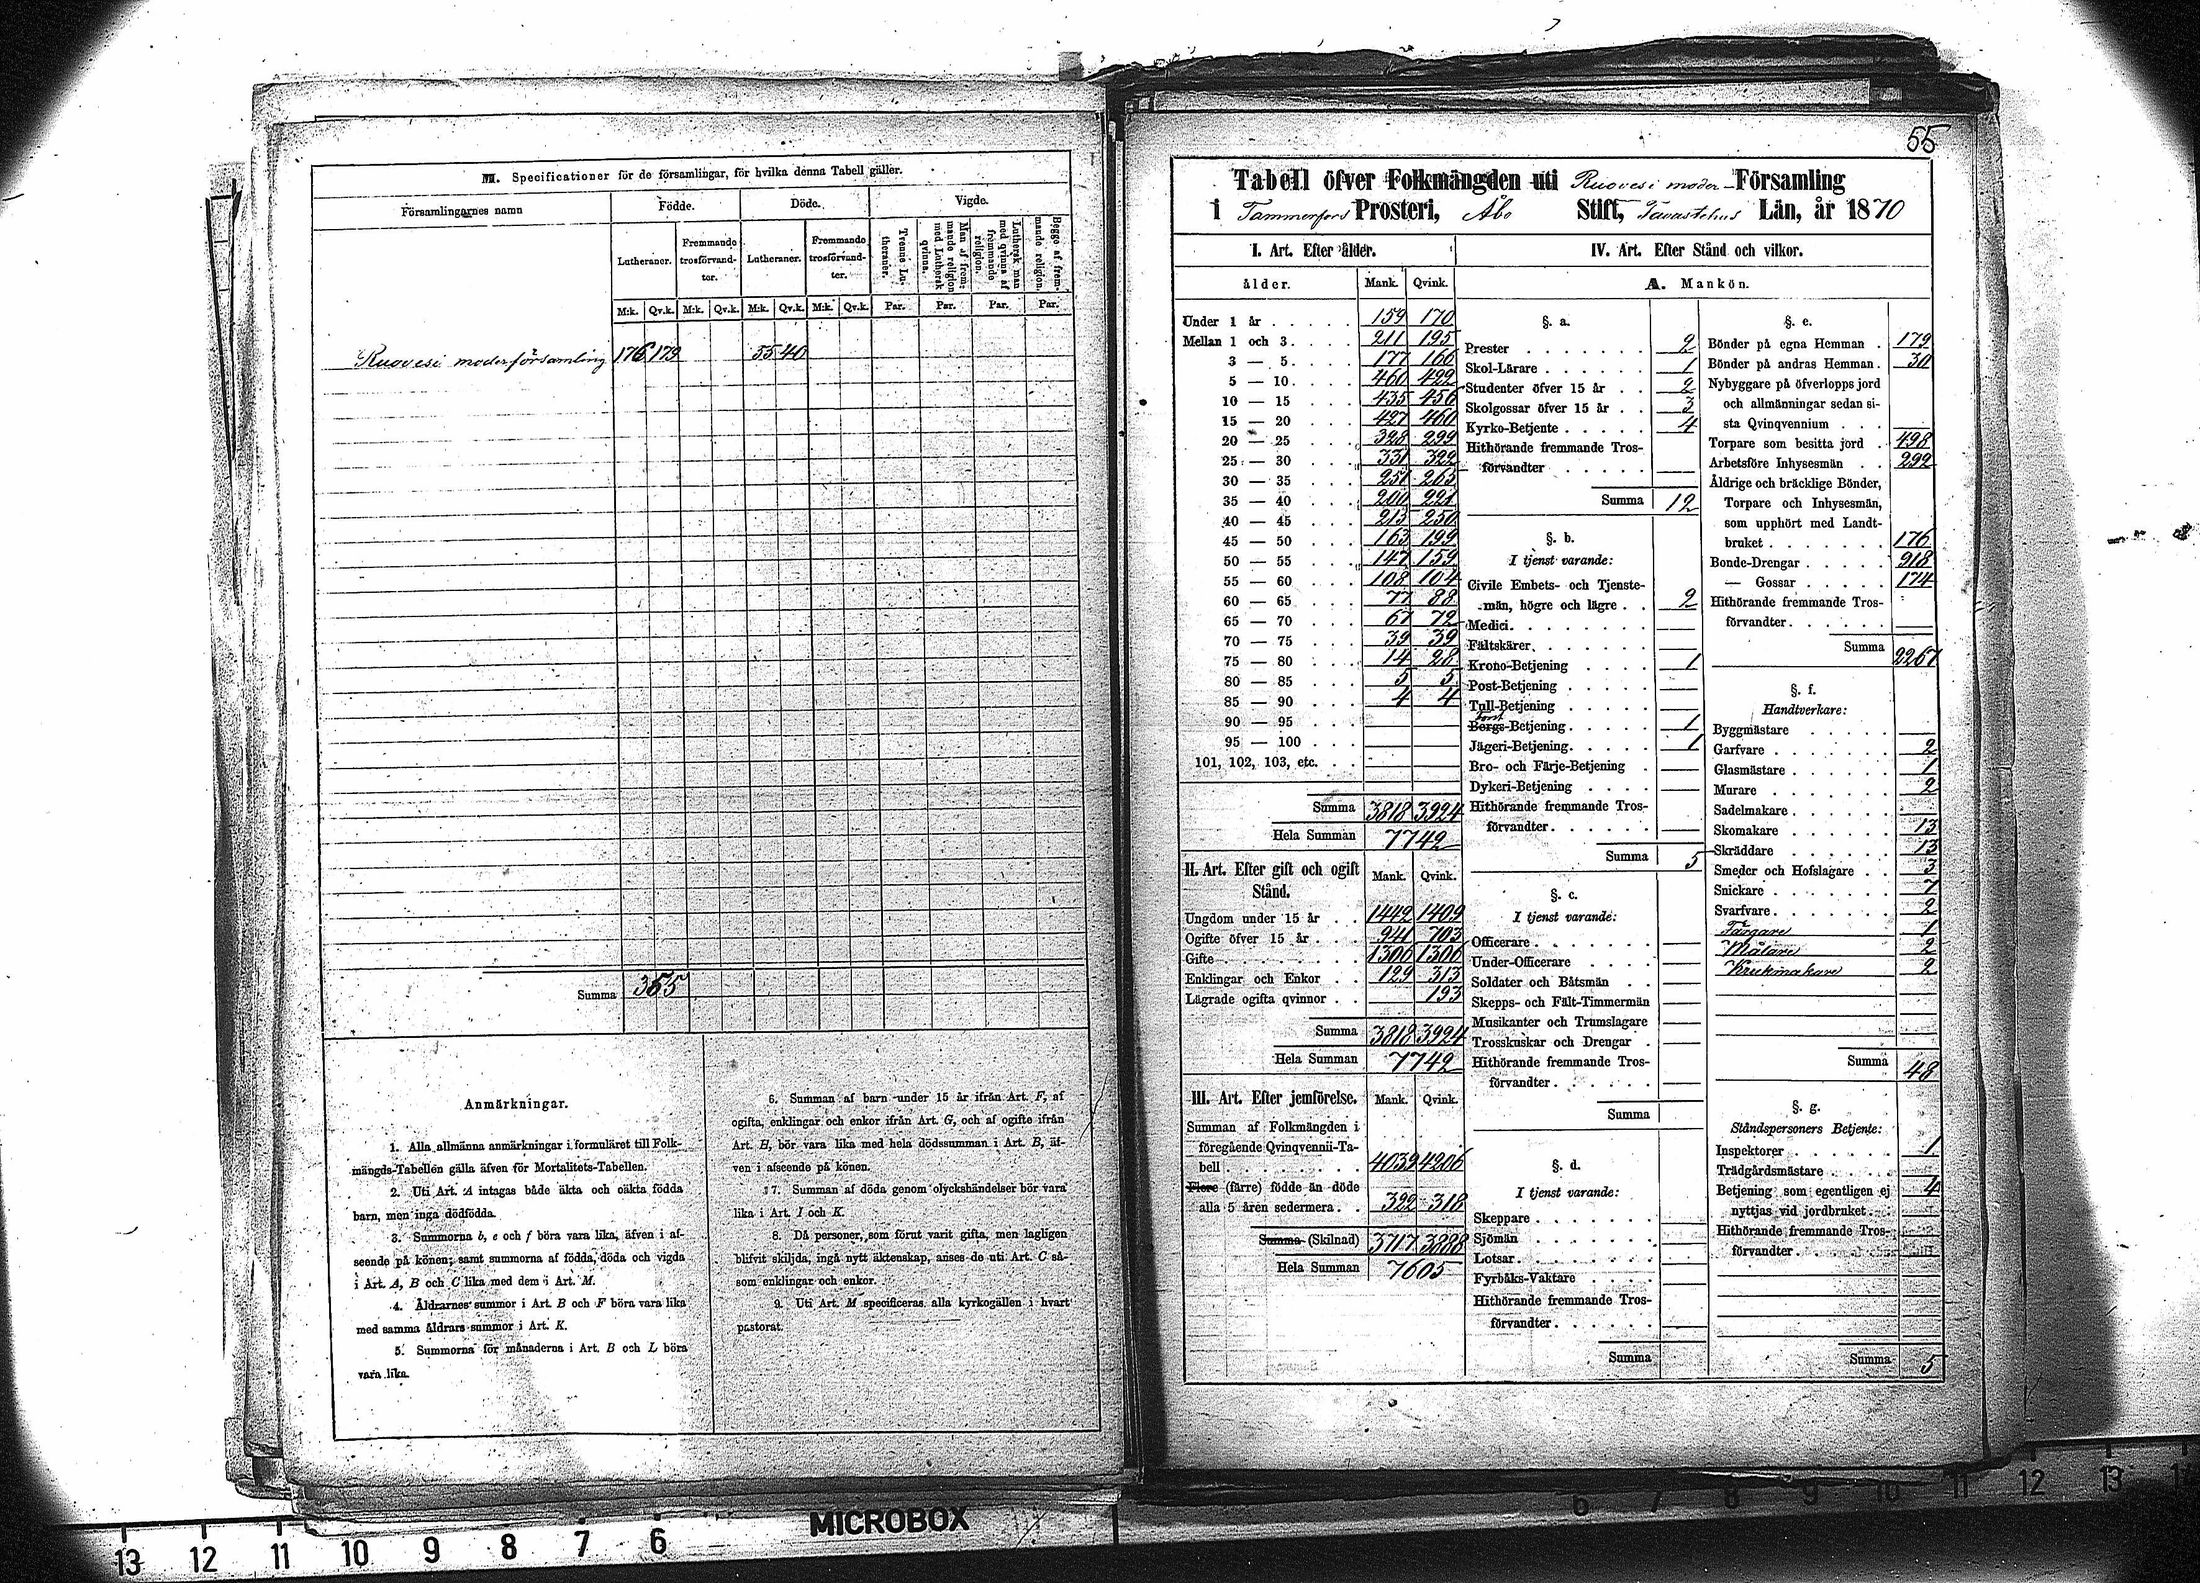 M. Specificationer för de församlingar, för hvilka denna Tabell gäller.
Församlingarnes namn
Födde. Döde. Vigde.
Lutheraner. Fremmande trosförvandter. Lutheraner. Fremmande trosförvandter. Trenne Lutheraner. Man af fremmande religion med Luthersk qvinna. Luthersk man med qvinna af fremmande religion. Begge af fremmande religion.
M:k. Qv.k. M:k. Qv.k. M:k. Qv.k. M:k. Qv.k. Par. Par. Par. Par.
Ruovesi moderförsamling 176 179 55 40
Summa 355
Anmärkningar.
1. Alla allmänna anmärkningar i formuläret till Folk-
mängds-Tabellen gälla äfven för Mortalitets-Tabellen.
2. Uti Art. A intagas både äkta och oäkta födda
barn, men inga dödfödda.
3. Summorna b, e och f böra vara lika, äfven i af-
seende på könen; samt summorna af födda, döda och vigda
i Art. A, B och C lika med dem i Art. M.
4. Åldrarnes summor i Art. B och F böra vara lika
med samma åldrars summor i Art. K.
5. Summorna för månaderna i Art. B och L böra
vara lika.
6. Summan af barn under 15 år ifrån Art. F, af
ogifta, enklingar och enkor ifrån Art. G, och af ogifte ifrån
Art. H, bör vara lika med hela dödssumman i Art. B, äf-
ven i afseende på könen.
7. Summan af döda genom olyckshändelser bör vara
lika i Art. I och K.
8. Då personer, som förut varit gifta, men lagligen
blifvit skiljda, ingå nytt äktenskap, anses de uti Art. C så-
som enklingar och enkor.
9. Uti Art. M specificeras alla kyrkogällen i hvart
pastorat.
55
Tabell öfver Folkmängden uti Ruovesi moder-Församling
i Tammerfors Prosteri, Åbo Stift, Tavastehus Län, år 1870
I. Art. Efter ålder.
ålder. Mank. Qvink.
Under 1 år 159 170
Mellan 1 och 3 211 195
3 — 5 177 166
5 — 10 460 422
10 — 15 435 456
15 — 20 427 460
20 — 25 328 299
25 — 30 331 322
30 — 35 251 265
35 — 40 200 221
40 — 45 213 250
45 — 50 163 199
50 — 55 147 159
55 — 60 108 104
60 — 65 77 88
65 — 70 67 72
70 — 75 39 39
75 — 80 14 28
80 — 85 5 5
85 — 90 4 4
90 — 95
95 — 100
101, 102, 103, etc.
Summa 3818 3924
Hela Summan 7742
II. Art. Efter gift och ogift Stånd. Mank. Qvink.
Ungdom under 15 år 1442 1409
Ogifte öfver 15 år 941 703
Gifte 1306 1306
Enklingar och Enkor 129 313
Lägrade ogifta qvinnor 193
Summa 3818 3924
Hela Summan 7742
III. Art. Efter jemförelse. Mank. Qvink.
Summan af Folkmängden i
föregående Qvinqvennii-Ta-
bell 4039 4206
Flere (färre) födde än döde
alla 5 åren sedermera 322 318
Summa (Skilnad) 3717 3888
Hela Summan 7605
IV. Art. Efter Stånd och vilkor.
A. Mankön.
§. a.
Prester 2
Skol-Lärare 1
Studenter öfver 15 år 2
Skolgossar öfver 15 år 3
Kyrko-Betjente 4
Hithörande fremmande Tros-
förvandter
Summa 12
§. b.
I tjenst varande:
Civile Embets- och Tjenste-
män, högre och lägre 2
Medici
Fältskärer
Krono-Betjening 1
Post-Betjening
Tull-Betjening
Forst
Bergs-Betjening 1
Jägeri-Betjening 1
Bro- och Färje-Betjening
Dykeri-Betjening
Hithörande fremmande Tros-
förvandter
Summa 5
§. c.
I tjenst varande:
Officerare
Under-Officerare
Soldater och Båtsmän
Skepps- och Fält-Timmermän
Musikanter och Trumslagare
Trosskuskar och Drengar
Hithörande fremmande Tros-
förvandter
Summa
§. d.
I tjenst varande:
Skeppare
Sjömän
Lotsar
Fyrbåks-Vaktare
Hithörande fremmande Tros-
förvandter
Summa
§. e.
Bönder på egna Hemman 179
Bönder på andras Hemman 30
Nybyggare på öfverlopps jord
och allmänningar sedan si-
sta Qvinqvennium
Torpare som besitta jord 498
Arbetsföre Inhysesmän 292
Åldrige och bräcklige Bönder,
Torpare och Inhysesmän,
som upphört med Landt-
bruket 176
Bonde-Drengar 918
— Gossar 174
Hithörande fremmande Tros-
förvandter
Summa 2267
§. f.
Handtverkare:
Byggmästare
Garfvare 2
Glasmästare 1
Murare 2
Sadelmakare
Skomakare 13
Skräddare 13
Smeder och Hofslagare 3
Snickare 7
Svarfvare 2
Färgare 1
Målare 2
Krukmakare 2
Summa 48
§. g.
Ståndspersoners Betjente:
Inspektorer 1
Trädgårdsmästare
Betjening som egentligen ej 4
nyttjas vid jordbruket
Hithörande fremmande Tros-
förvandter
Summa 5
MICROBOX
13 12 11 10 9 8 7 6
6 7 8 9 10 11 12 13